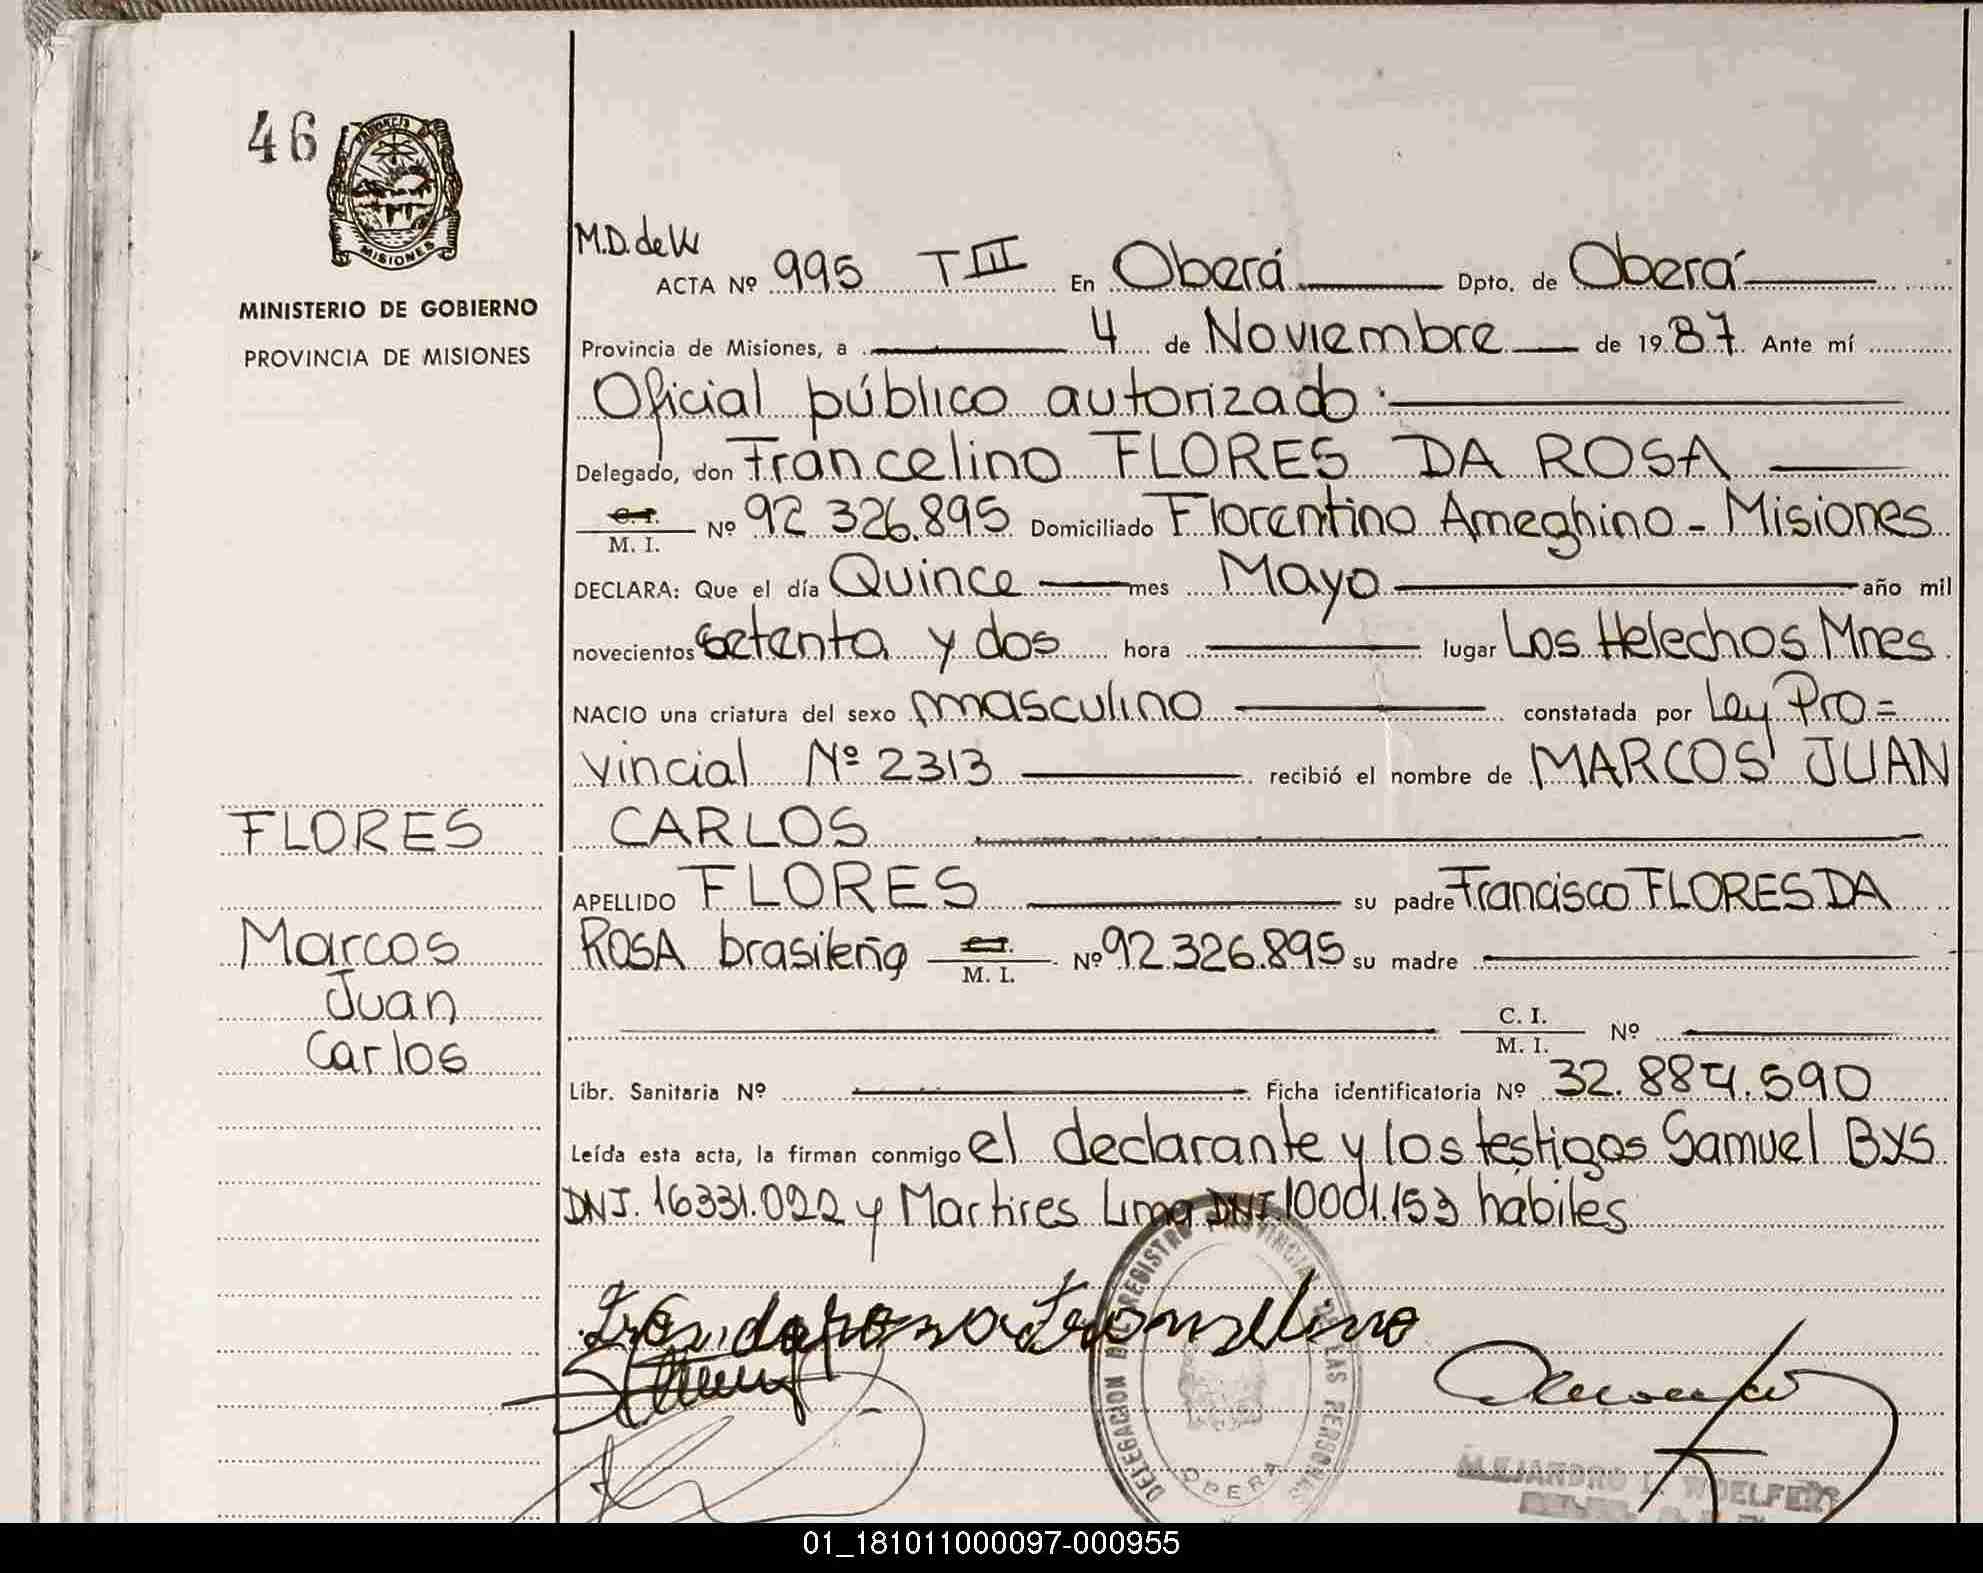 46
PROVINCIA DE
MISIONES
MINISTERIO DE GOBIERNO
PROVINCIA DE MISIONES
FLORES
Marcos
Juan
Carlos
M.D. de W
ACTA Nº 995 TIII En Oberá Dpto. de Oberá
Provincia de Misiones, a 4 de Noviembre de 1987 Ante mí
Oficial público autorizado.
Delegado, don Francelino FLORES DA ROSA
C. I.
M. I. Nº 92.326.895 Domiciliado Florentino Ameghino - Misiones
DECLARA: Que el día Quince mes Mayo año mil
novecientos setenta y dos hora lugar Los Helechos Mnes.
NACIO una criatura del sexo masculino constatada por Ley Pro=
vincial Nº 2313 recibió el nombre de MARCOS JUAN
CARLOS
APELLIDO FLORES su padre Francisco FLORES DA
ROSA brasileño C. I. M. I. Nº 92.326.895 su madre
C. I.
M. I. Nº
Libr. Sanitaria Nº Ficha identificatoria Nº 32.884.590
Leída esta acta, la firman conmigo el declarante y los testigos Samuel BYS
DNI. 16331.022 y Martires Lima DNI 10001.153 hábiles
DELEGACION DEL REGISTRO PROVINCIAL DE LAS PERSONAS
OBERA
ALEJANDRO
01_181011000097-000955